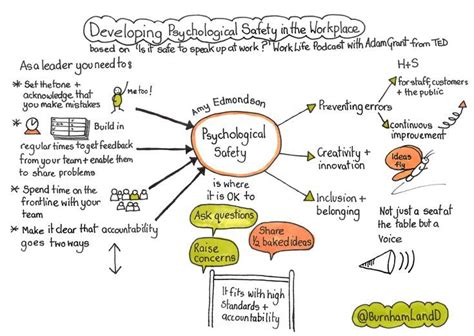 Developing Psychological Safety in the Workplace
based on "Is it safe to speak up at work?" WorkLife Podcast with Adam Grant from TED
As a leader you need to:
* Set the tone +
acknowledge that
you make mistakes
Me too!
* Build in
regular times to get feedback
from your team + enable them
to share problems
* Spend time on the
frontline with your
team
* Make it clear that accountability
goes two ways
Amy Edmondson
Psychological
Safety
is where
it is OK to
Ask questions
Raise
concerns
Share
½ baked ideas
It fits with high
standards +
accountability
Preventing errors
H+S
for staff, customers
+ the public
continuous
improvement
Creativity +
innovation
Ideas
fly
Inclusion +
belonging
Not just a seat at
the table but a
Voice
@BurnhamLandD